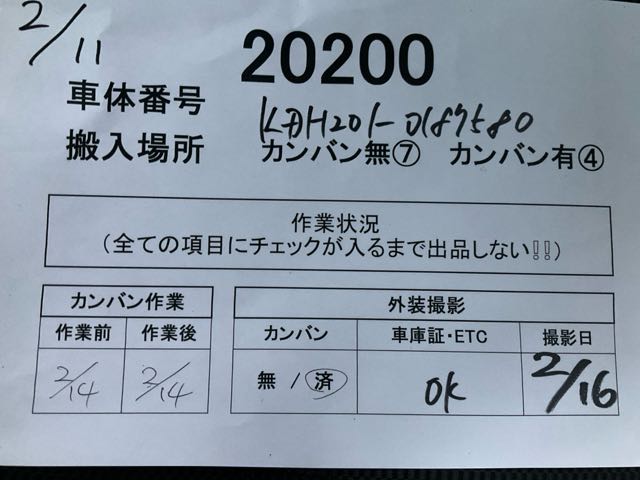 2/11
20200
車体番号 KDH201-0187580
搬入場所 カンバン無⑦ カンバン有④
作業状況
(全ての項目にチェックが入るまで出品しない!!)
カンバン作業 外装撮影
作業前 作業後 カンバン 車庫証・ETC 撮影日
2/14 2/14 無 / 済 OK 2/16